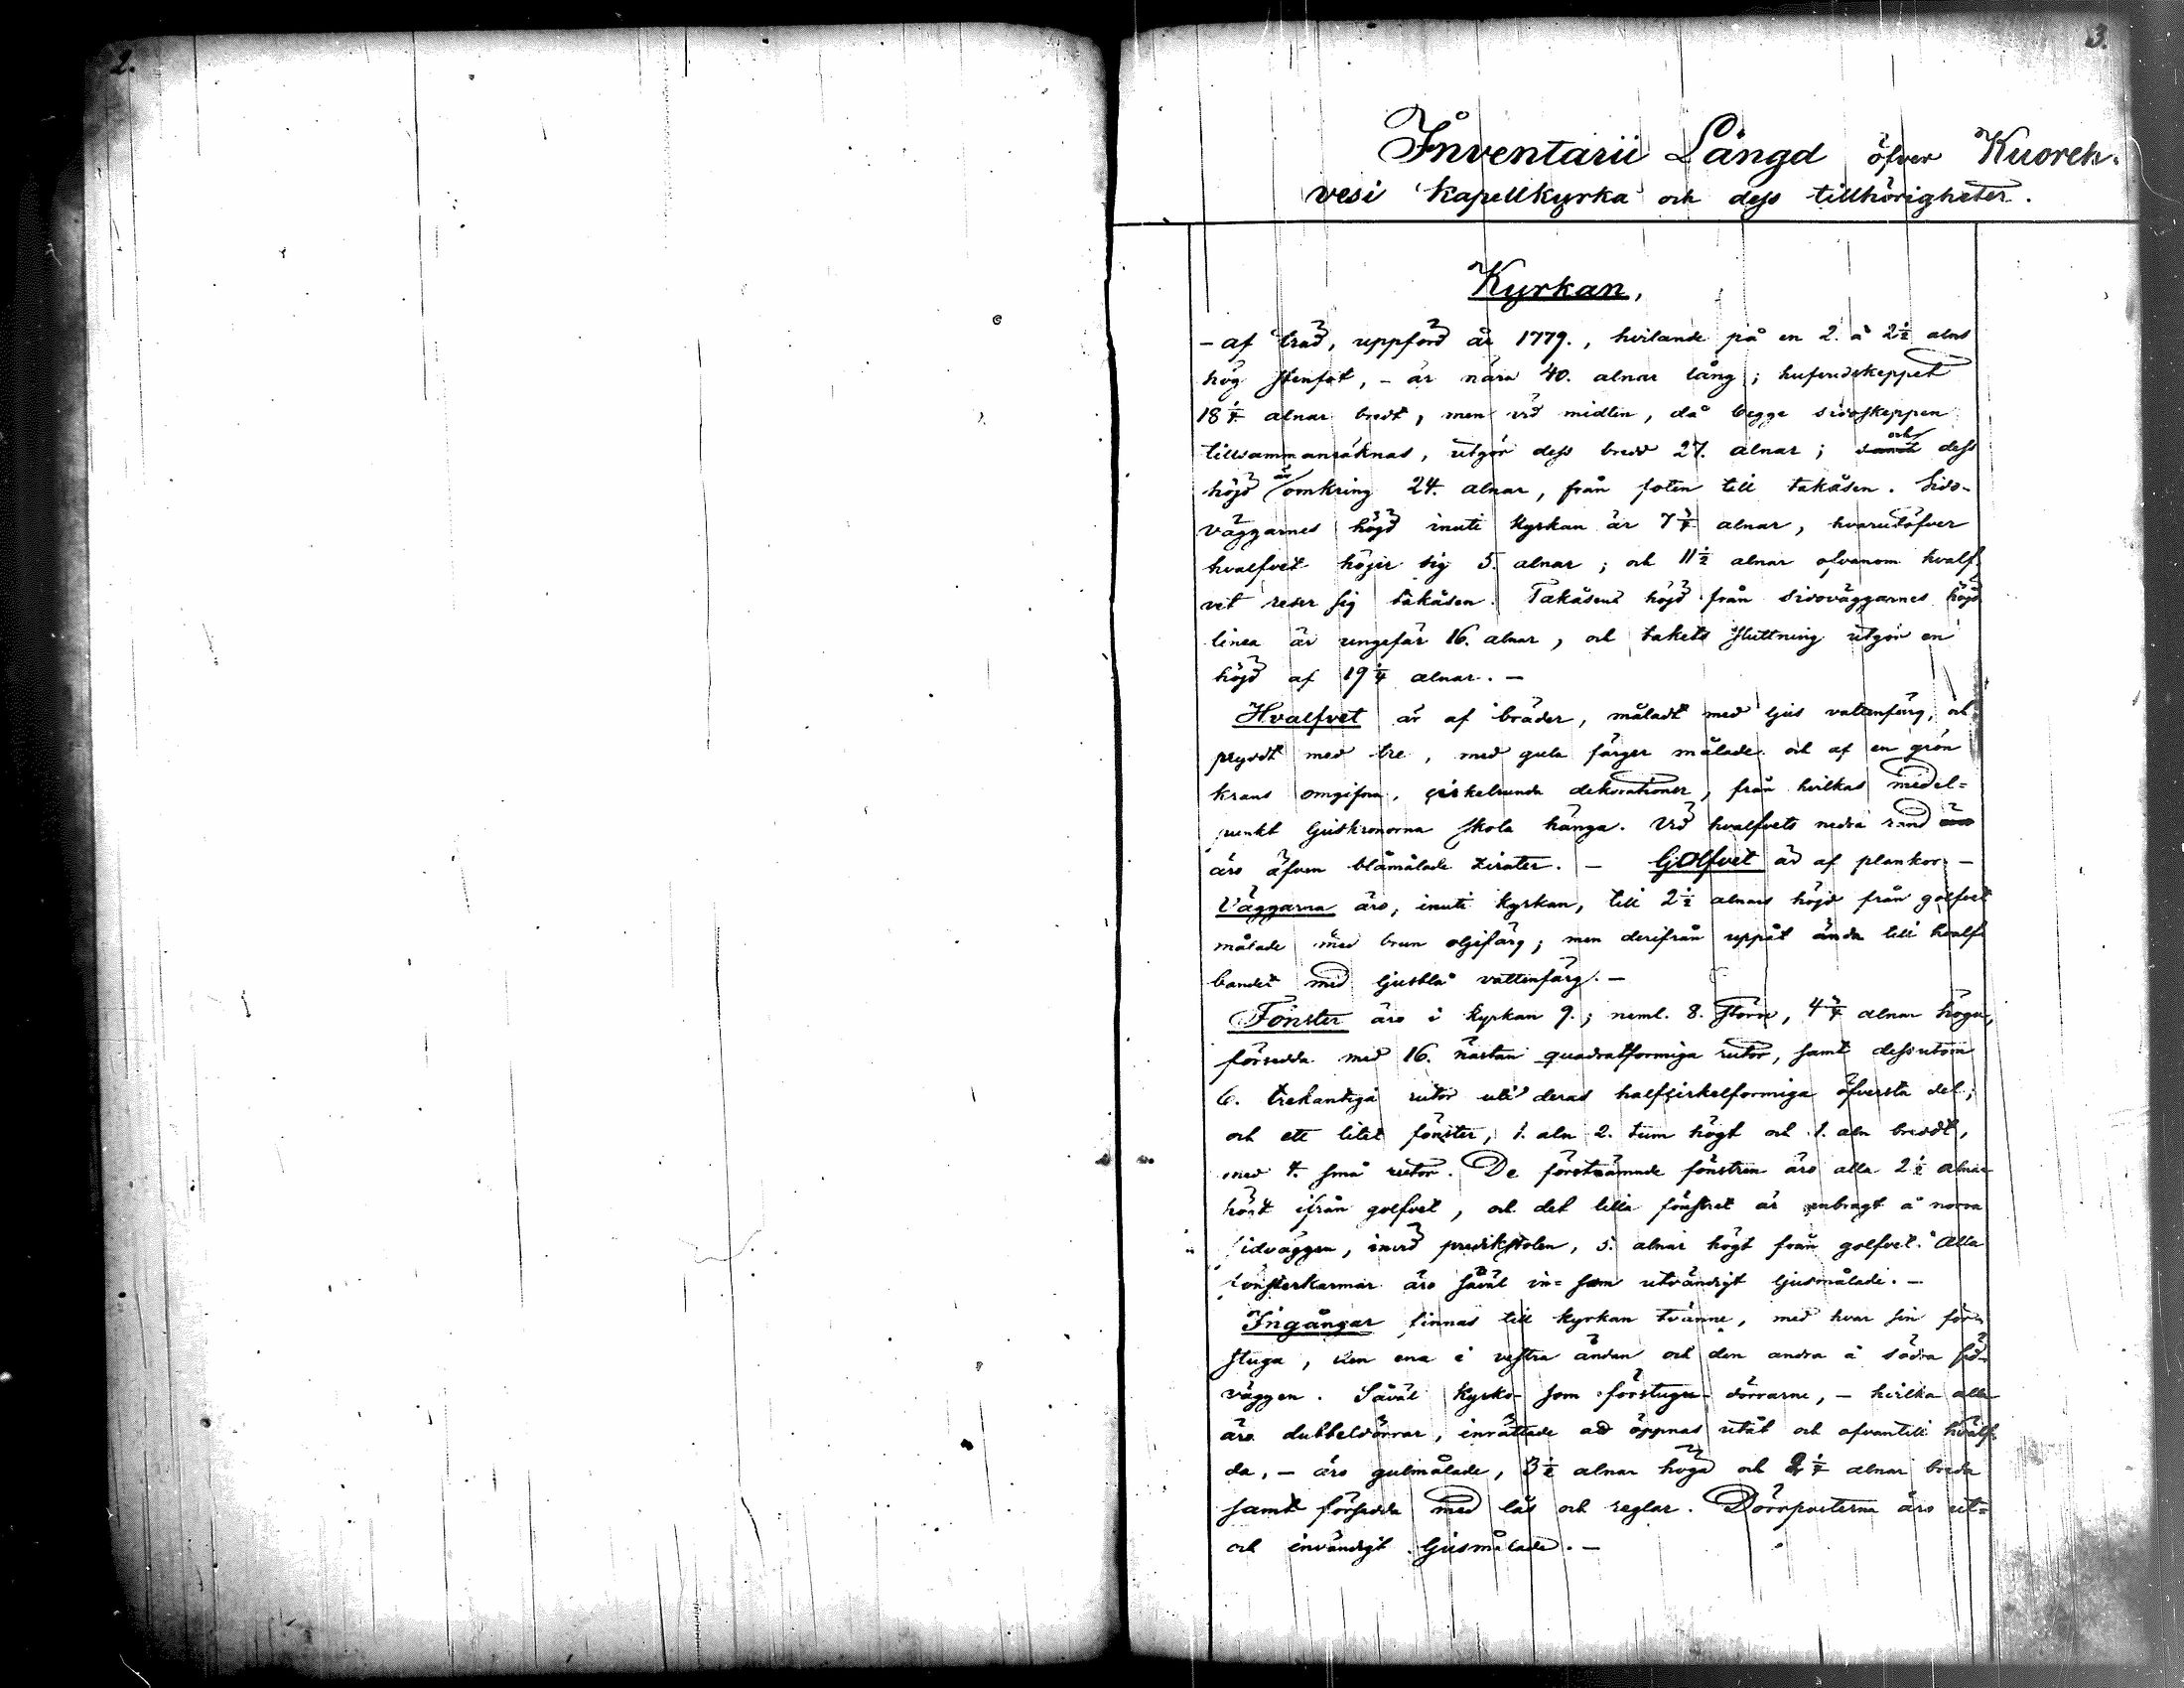 2.
3.
Inventarii Längd öfver Kuoreh-
vesi Kapellkyrka och dess tillhörigheter.
Kyrkan,
- af träd, uppförd år 1779., hvilande på en 2. à 2½ alns
hög stenfot, - är nära 40. alnar lång; hufvudskeppet
18¼ alnar bredt, men vid midten, då begge sidoskeppen
tillsammanräknas, utgör dess bredd 27. alnar; samt och dess
höjd är omkring 24. alnar, från foten till takåsen. Sido-
väggarnes höjd inuti kyrkan är 7¾ alnar, hvarutöfver
hvalfvet höjer sig 5. alnar; och 11½ alnar ofvanom hvalf-
vet reser sig takåsen. Takåsens höjd från sidoväggarnes höjd
linea är ungefär 16. alnar, och takets sluttning utgör en
höjd af 19¼ alnar. -
Hvalfvet är af bräder, måladt med ljus vattenfärg, och
prydt med tre, med gula färger målade och af en grön
krans omgifna, cirkelrunda dekorationer, från hvilkas medel=
punkt ljuskronorna skola hänga. Vid hvalfvets nedra rand
äro äfven blåmålade zirater. - Golfvet är af plankor. -
Väggarna äro, inuti kyrkan, till 2½ alnars höjd från golfvet
målade med brun oljefärg; men derifrån uppåt ända till hvalf-
bandet med ljusblå vattenfärg. -
Fönster äro i kyrkan 9.; neml. 8. störrε, 4¾ alnar höga,
försedda med 16. nästan quadratformiga rutor, samt dessutom
6. trekantiga rutor uti deras halfcirkelformiga öfversta del;
och ett litet fönster, 1. aln 2. tum högt och 1. aln bredt,
med 4. små rutor. De förstnämnde fönstren äro alla 2½ alnar
högt ifrån golfvet, och det lilla fönstret är anbragt å norra
sidväggen, invid predikstolen, 5. alnar högt från golfvet. Alla
fönsterkarmar äro såväl in= som utvändigt ljusmålade. -
Ingångar finnas till kyrkan tvänne, med hvar sin för-
stuga, den ena i vestra ändan och den andra å södra sid-
väggen. Såväl kyrko- som förstugu-dörrarne, - hvilka alla
äro dubbeldörrar, inrättade att öppnas utåt och ofvantill hvälf-
da, - äro gulmålade, 3½ alnar höga och 2¼ alnar breda
samt försedda med lås och reglar. Dörrposterna äro ut=
och invändigt ljusmålade. -